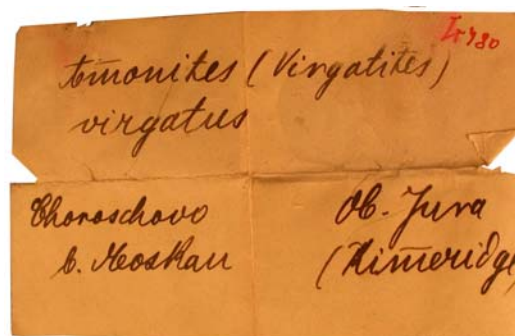 Am̅onites (Virgatites)
virgatus
Choroschovo
b. Moskau
Ob. Jura
(Kim̅eridge